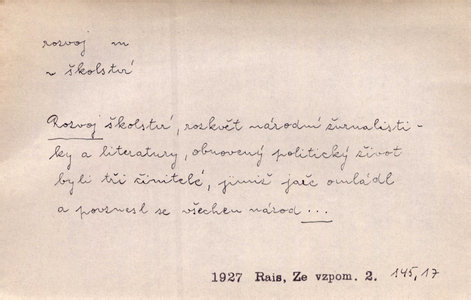 rozvoj m
~ školství
Rozvoj školství, rozkvět národní žurnalisti-
ky a literatury, obnovený politický život
byli tři činitelé, jimiž jařc omládl
a povznesl se všechen národ...
1927 Rais, Ze vzpom. 2. 145,17